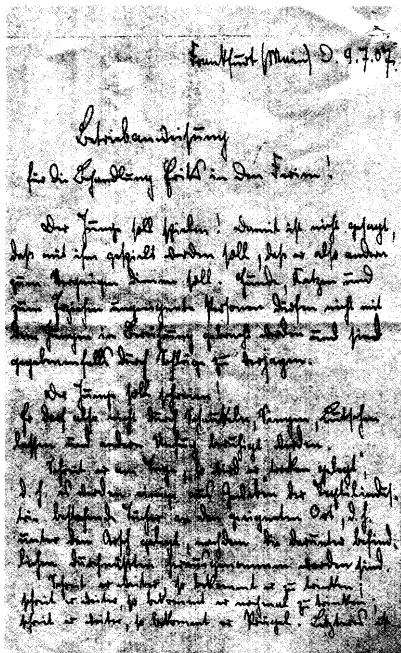 Frankfurt (Main) d. 9.7.07.
Betriebsanweisung
für die Behandlung Fritz in den Ferien!
Der Junge soll spielen! Damit ist nicht gesagt,
daß mit ihm gespielt werden soll, daß er also andern
zum Vergnügen dienen soll. Hunde, Katzen und
zum Erziehen ungeeignete Personen dürfen nicht mit
dem Jungen in Berührung gebracht werden und sind
gegebenenfalls durch Schläge zu verjagen.
Der Junge soll schreien!
Er darf also nicht durch Schaukeln, Singen, Lutschen
lassen und andern Unfug beruhigt werden.
Schreit er am Tage, so wird er trocken gelegt,
d. h. es werden einige aus der Textilindus-
trie bestehende Tücher an den geeigneten Ort, d. h.
unter den Arsch gelegt, nachdem die darunter befind-
lichen durchnäßten herausgenommen worden sind.
Schreit er weiter, so bekommt er zu trinken;
schreit er weiter, so bekommt er nochmal zu trinken;
schreit er weiter, so bekommt er Prügel. Letzteres ist